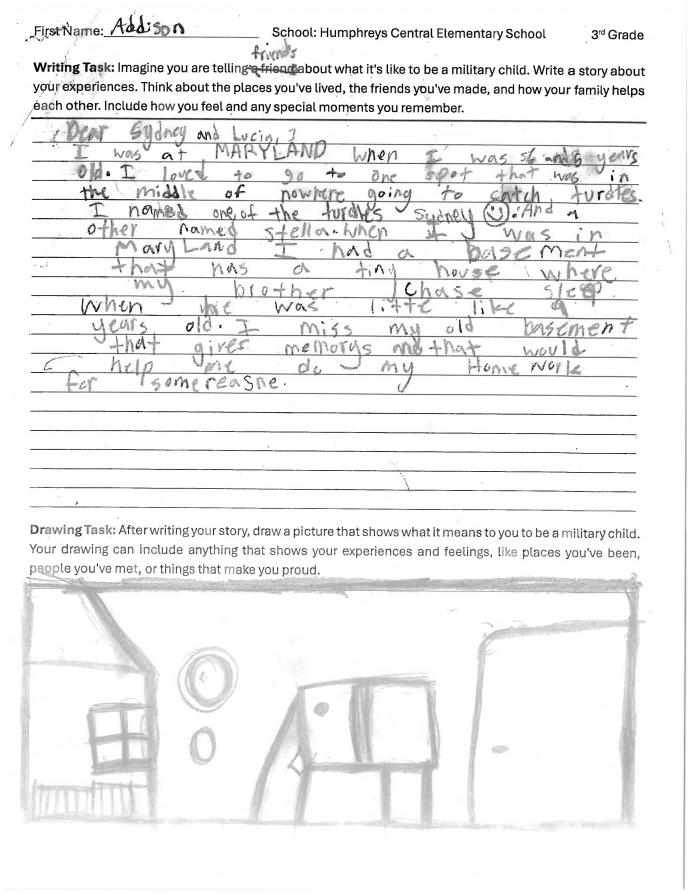 First Name: Addison School: Humphreys Central Elementary School 3rd Grade
friends
Writing Task: Imagine you are telling a friend about what it's like to be a military child. Write a story about
your experiences. Think about the places you've lived, the friends you've made, and how your family helps
each other. Include how you feel and any special moments you remember.
Dear Sydney and Lucia,
I was at MARYLAND when I was and 5 years
old. I loved to go to one spot that was in
the middle of nowhere going to catch turdles.
I named one of the turdles Sydney ☺. And a
other named stella. when I was in
MaryLand I had a basement
that has a tiny house where
my brother chase sleep
when he was litte like 9
years old. I miss my old basement
that gives memorys and that would
help me do my Home work
for some reasne.
Drawing Task: After writing your story, draw a picture that shows what it means to you to be a military child.
Your drawing can include anything that shows your experiences and feelings, like places you've been,
people you've met, or things that make you proud.